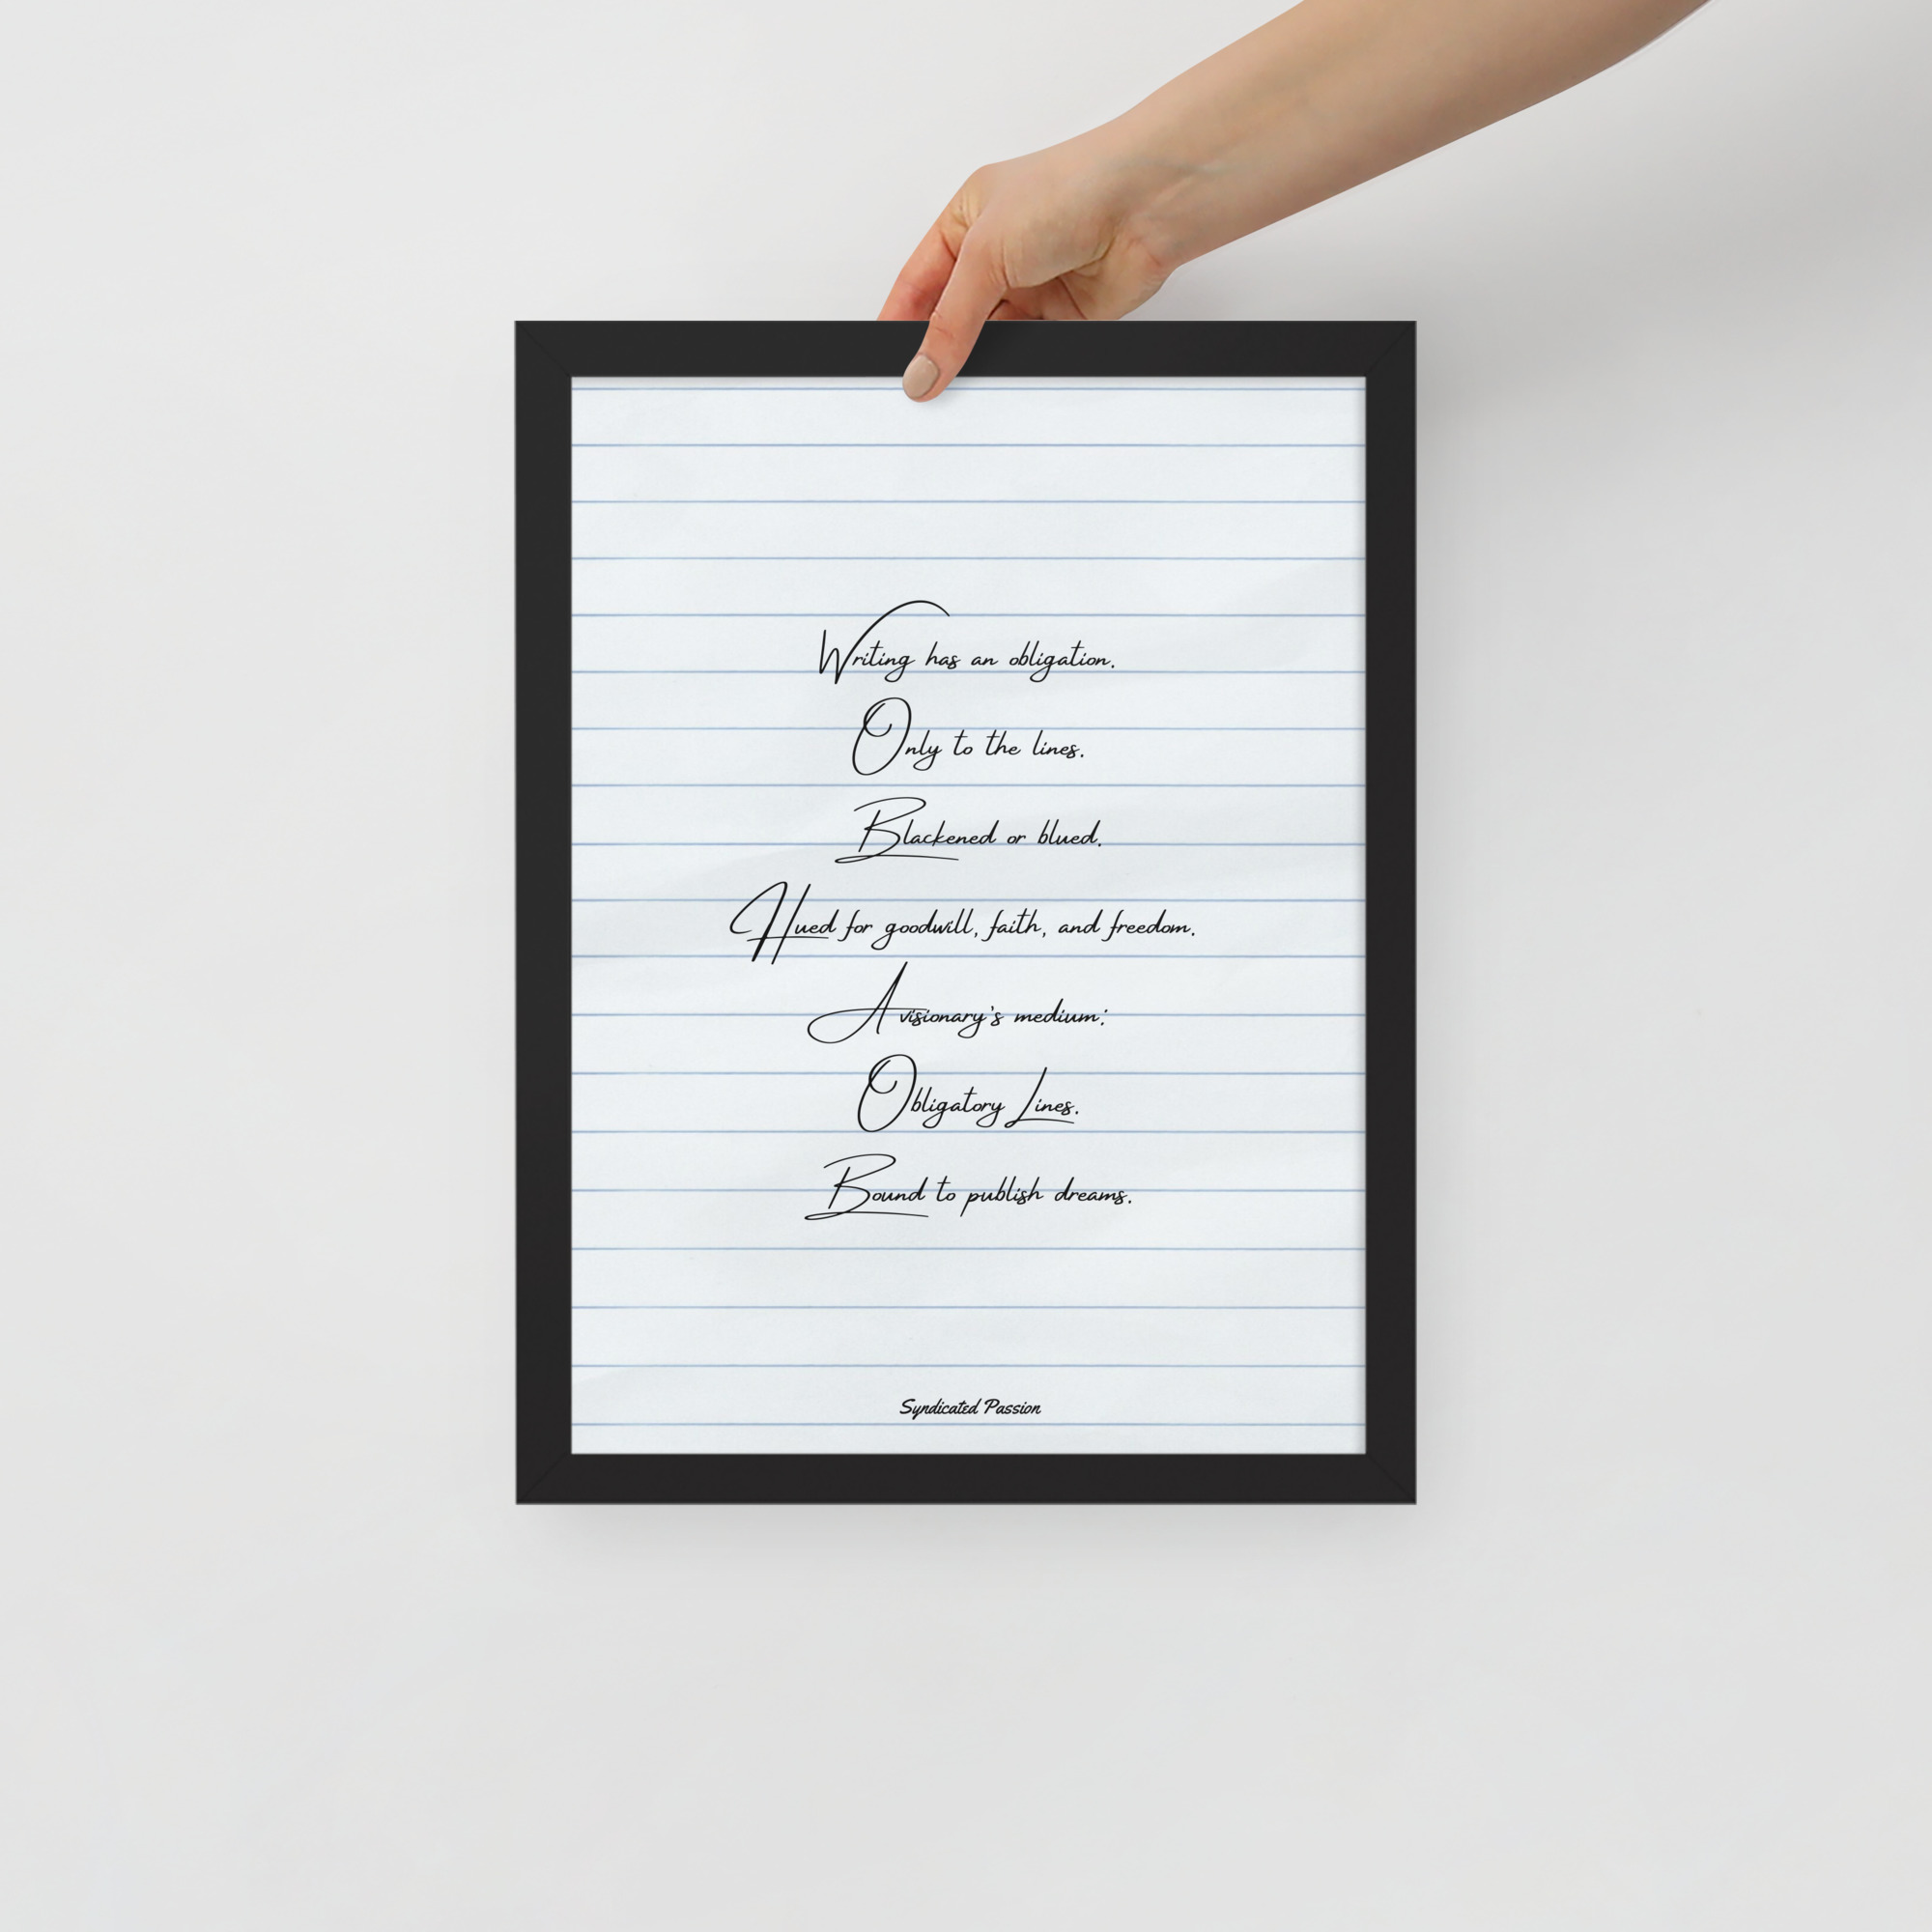 Writing has an obligation.
Only to the lines.
Blackened or blued.
Hued for goodwill, faith, and freedom.
A visionary's medium:
Obligatory Lines.
Bound to publish dreams.
Syndicated Passion